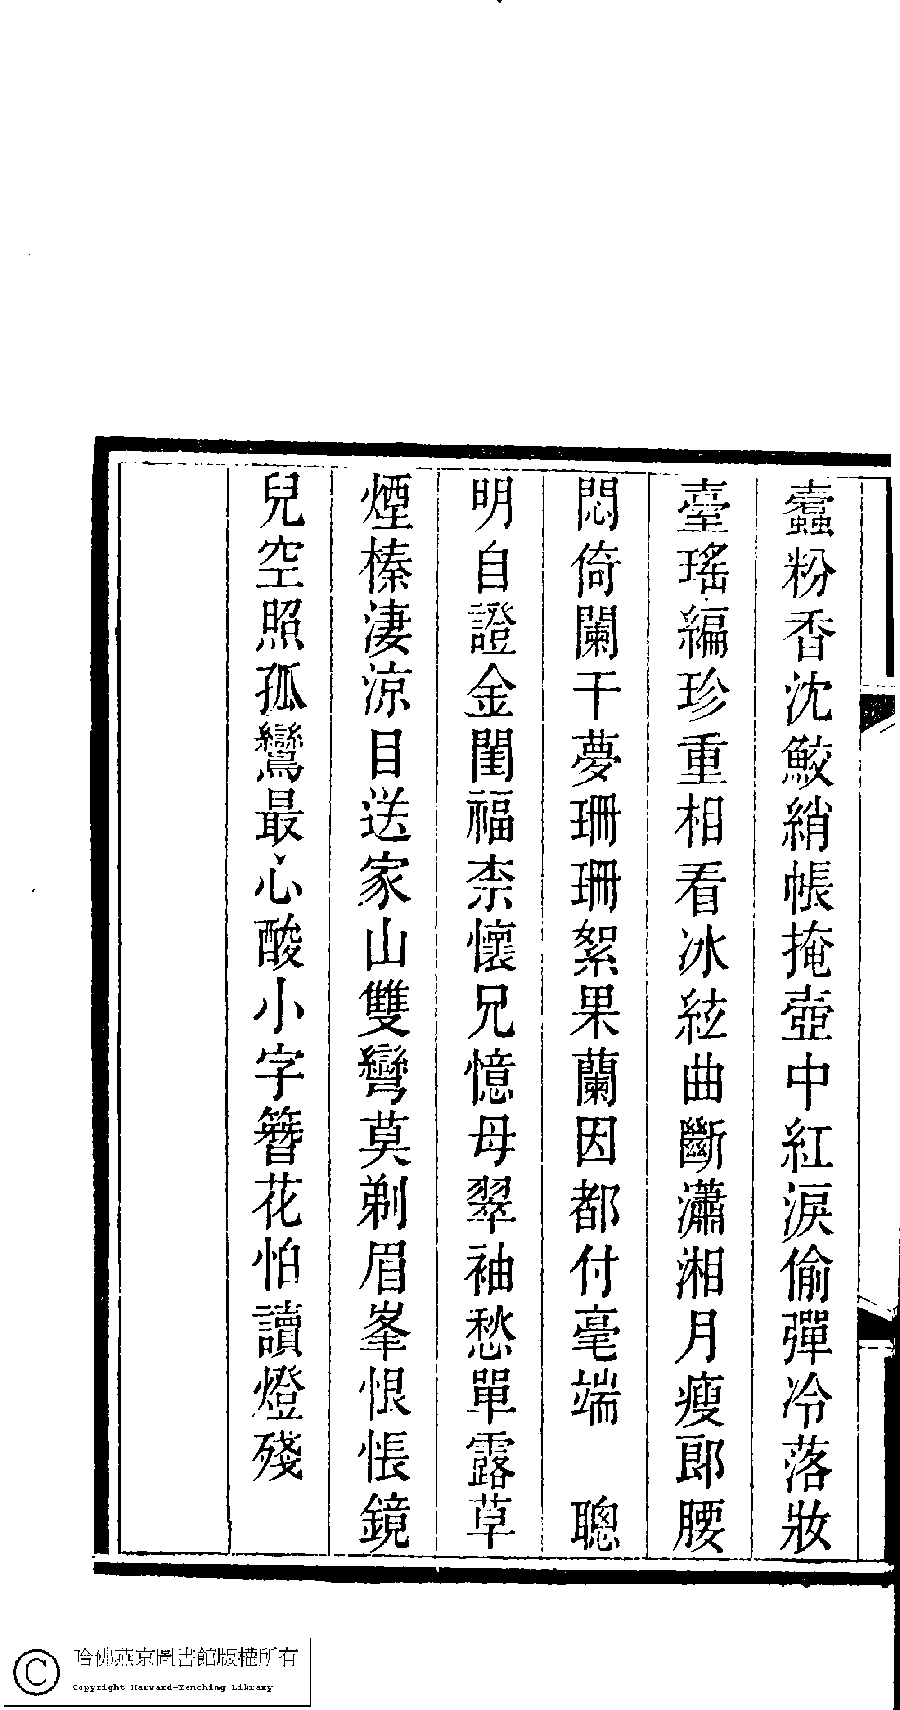 蠹粉香沈鮫綃帳掩壺中紅淚偷彈冷落妝
臺瑤編珍重相看冰絃曲斷瀟湘月瘦郎腰
悶倚闌干夢珊珊絮果蘭因都付毫端　聰
明自證金閨福柰懷兄憶母翠袖愁單露草
煙榛淒涼目送家山雙彎莫剃眉峯恨悵鏡
兒空照孤鸞最心酸小字簪花怕讀燈殘
哈佛燕京圖書館版權所有
Copyright Harvard-Yenching Library